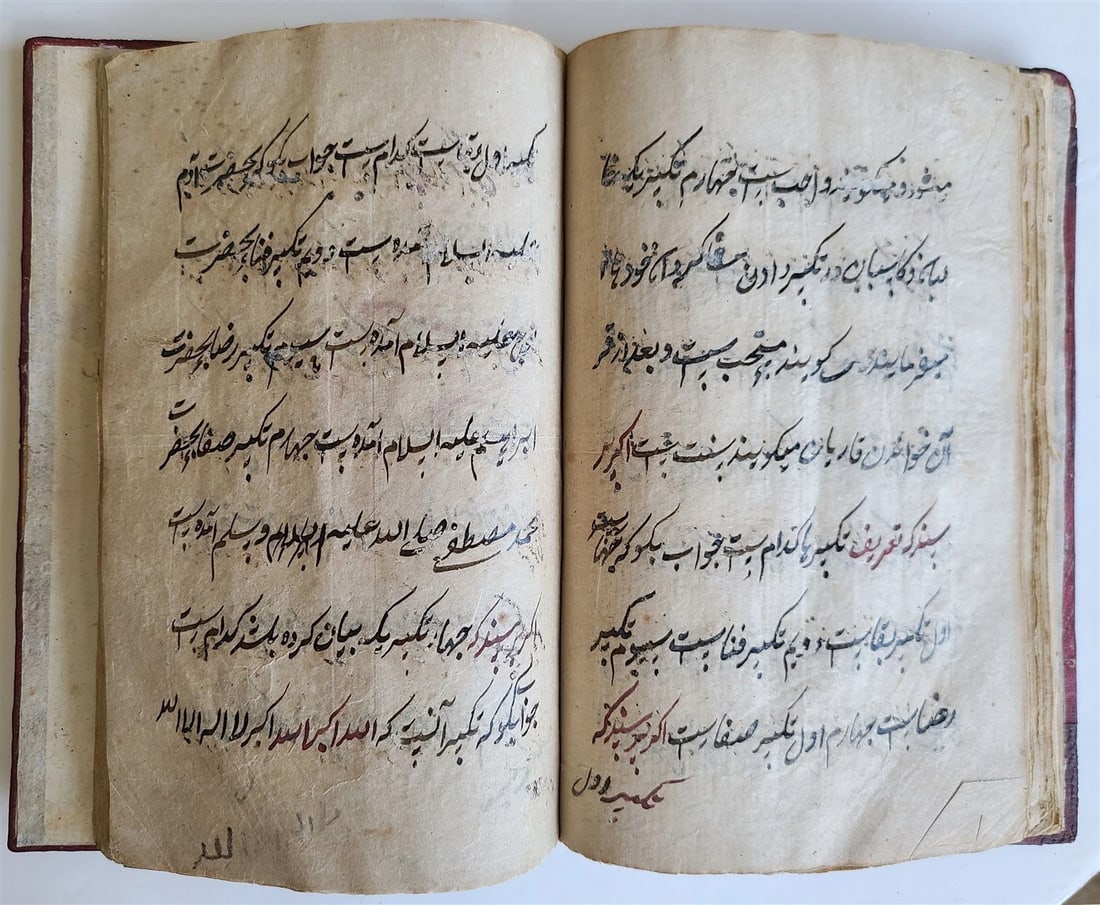 میشود و میگویند واجب است چهارم تکبیر یکه
در تکبیر دادن خود
میفرمایند می گویند مستحب است و بعد از
آن خواندن قاریان میگویند سنت است اگر پر
سند که تعریف تکبیر ها کدام است جواب بگو که چهار است
اول تکبیر بقا است دویم تکبیر فنا است سیوم تکبیر
رضا است چهارم اول تکبیر صفا است اگر پرسند که
تکبیر اول
تکبیر اول بقا است کدام است جواب بگو که بحضرت آدم
علیه السلام آمده است دویم تکبیر فنا بحضرت
نوح علیه السلام آمده است سیوم تکبیر رضا بحضرت
ابراهیم علیه السلام آمده است چهارم تکبیر صفا بحضرت
محمد مصطفی صلی الله علیه و سلم آمده است
اگر پرسند که چهار تکبیر یکه بیان کرده باشد کدام است
جواب بگو که تکبیر آنست که الله اکبر الله اکبر لا اله الا الله
الله